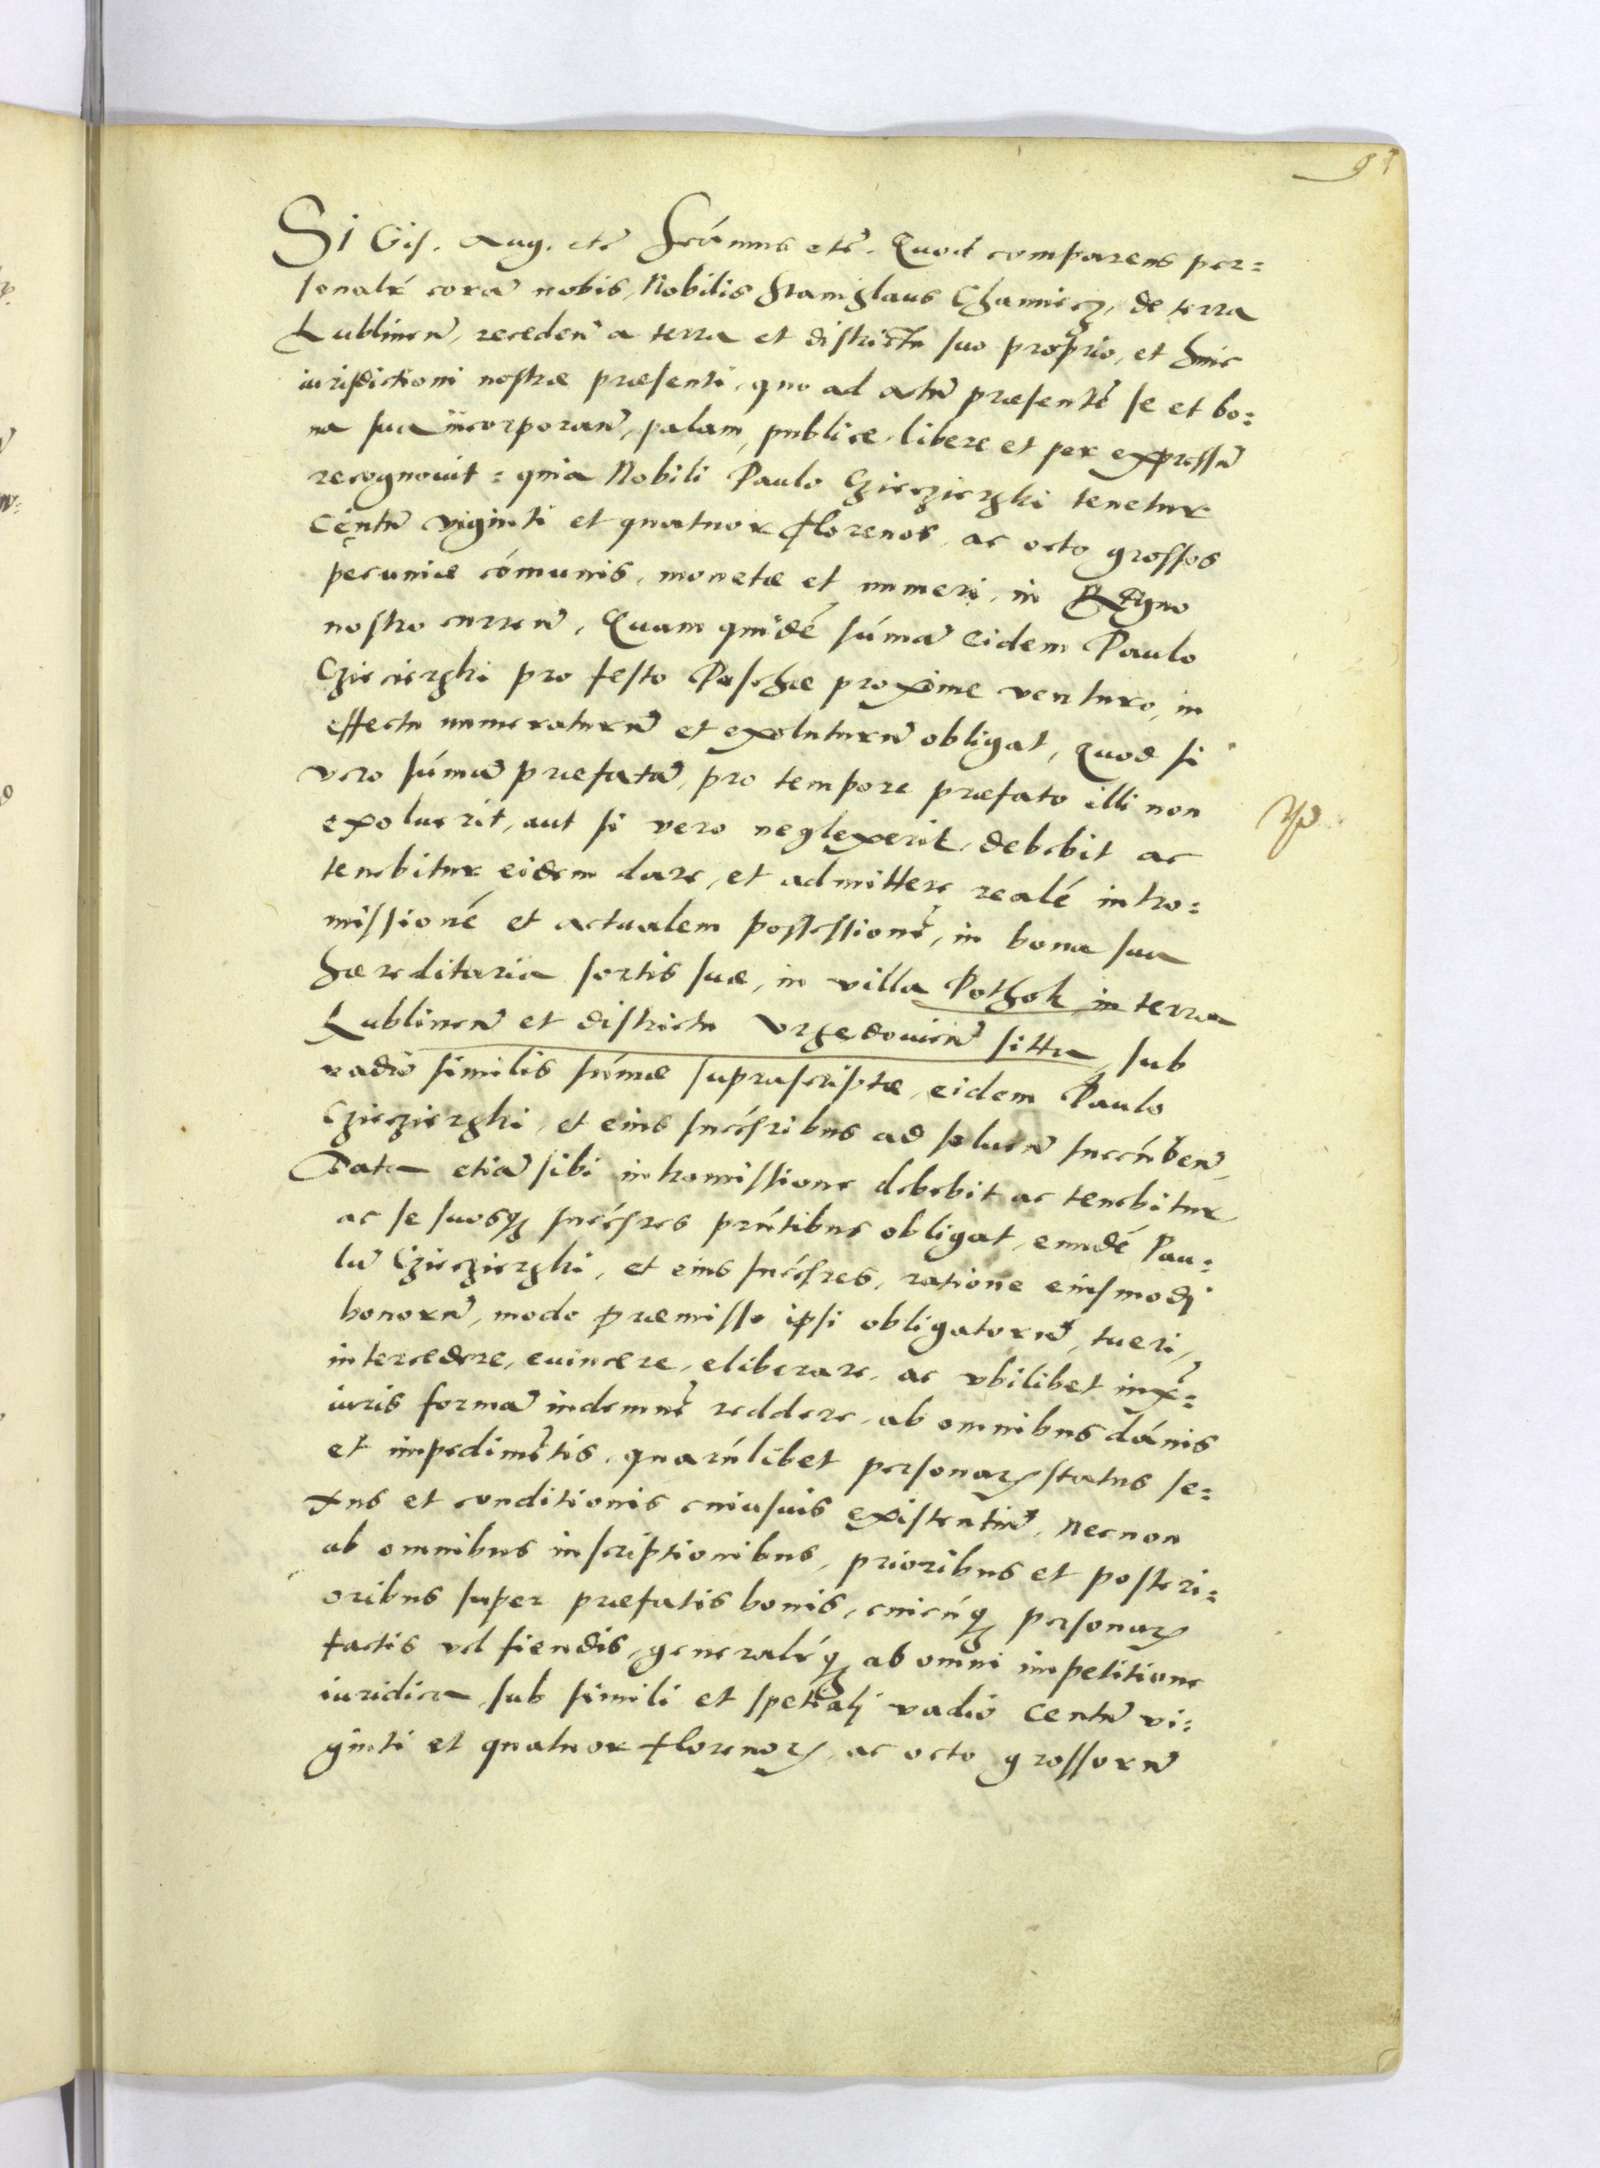 91
SiGis. Aug. etc̃ Scímus etc̃. Quod comparens per=
sonalr̃ corã nobis, Nobilis Stanislaus Chamiecz, de terra
Lublineñ, recedeñ a terra et districtu suo proprio, et huic
iurisdictioni nostræ præsenti, quo ad actũ præsentẽ se et bo=
na sua incorporañ, palam, publice, libere et per expressũ
recognovit: quia Nobili Paulo Czieczierzki tenetur
Centũ viginti et quatuor florenos, ac octo grossos
pecuniæ cõmunis, monetæ et numeri, in Regno
nostro curreñ, Quam quidẽ súmã Eidem Paulo
Czieczierzki pro festo Paschæ proxime venturo, in
effectu numeraturũ et exoluturũ obligat, Quod si
vero súmã præfatã, pro tempore præfato illi non
exoluerit, aut si vero neglexerit, debebit ac
tenebitur eidem dare, et admittere realẽ intro=
missionẽ et actualem possessionẽ, in bona sua
hæreditaria sortis suæ, in villa Pothok in terra
Lublineñ et districtu Vrzedovieñ sitta, sub
vadio similis súmæ suprascriptæ, eidem Paulo
Czieczierzki, et eius succ̃sribus ad solueñ succũbeñ,
Data etiã sibi intromissione debebit ac tenebitur
ac se suosq₃ succ̃sres prñtibus obligat, eundẽ Pau=
lũ Czieczierzki, et eius succ̃sres, ratione eiusmodi
bonorũ, modo præmisso ipsi obligatorũ, tueri,
intercedere, euincere, eliberare, ac vbilibet iuxᵃ=
iuris formã indemnẽ reddere, ab omnibus dánis
et impedimẽtis, quarũlibet personarꝫ status se=
xus et conditionis cuiusuis existentiũ, Necnon
ab omnibus inscriptionibus, prioribus et posteri=
oribus super præfatis bonis, cuicũq₃ personarꝫ
factis vel fiendis, generalr̃q₃ ab omni impetitione
iuridica, sub simili et spetiali vadio Centũ vi=
ginti et quatuor florenorꝫ, ac octo grossorũ